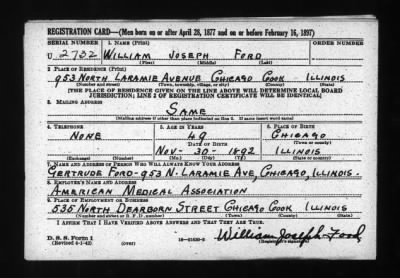 REGISTRATION CARD—(Men born on or after April 28, 1877 and on or before February 16, 1897)
SERIAL NUMBER 1. NAME (Print) ORDER NUMBER
U 2732 WILLIAM JOSEPH FORD
(First) (Middle) (Last)
2. PLACE OF RESIDENCE (Print)
953 NORTH LARAMIE AVENUE CHICAGO COOK ILLINOIS
(Number and street) (Town, township, village, or city) (County) (State)
[THE PLACE OF RESIDENCE GIVEN ON THE LINE ABOVE WILL DETERMINE LOCAL BOARD
JURISDICTION; LINE 2 OF REGISTRATION CERTIFICATE WILL BE IDENTICAL]
3. MAILING ADDRESS
SAME
(Mailing address if other than place indicated on line 2. If same insert word same)
4. TELEPHONE 5. AGE IN YEARS 6. PLACE OF BIRTH
NONE 49 CHICAGO
DATE OF BIRTH (Town or county)
NOV - 30 - 1892 ILLINOIS
(Exchange) (Number) (Mo.) (Day) (Yr.) (State or country)
7. NAME AND ADDRESS OF PERSON WHO WILL ALWAYS KNOW YOUR ADDRESS
GERTRUDE FORD-953 N. LARAMIE AVE, CHICAGO, ILLINOIS.
8. EMPLOYER'S NAME AND ADDRESS
AMERICAN MEDICAL ASSOCIATION
9. PLACE OF EMPLOYMENT OR BUSINESS
535 NORTH DEARBORN STREET CHICAGO COOK ILLINOIS
(Number and street or R. F. D. number) (Town) (County) (State)
I AFFIRM THAT I HAVE VERIFIED ABOVE ANSWERS AND THAT THEY ARE TRUE.
William Joseph Ford
D. S. S. Form 1 (Registrant's signature)
(Revised 4-1-42) (over)